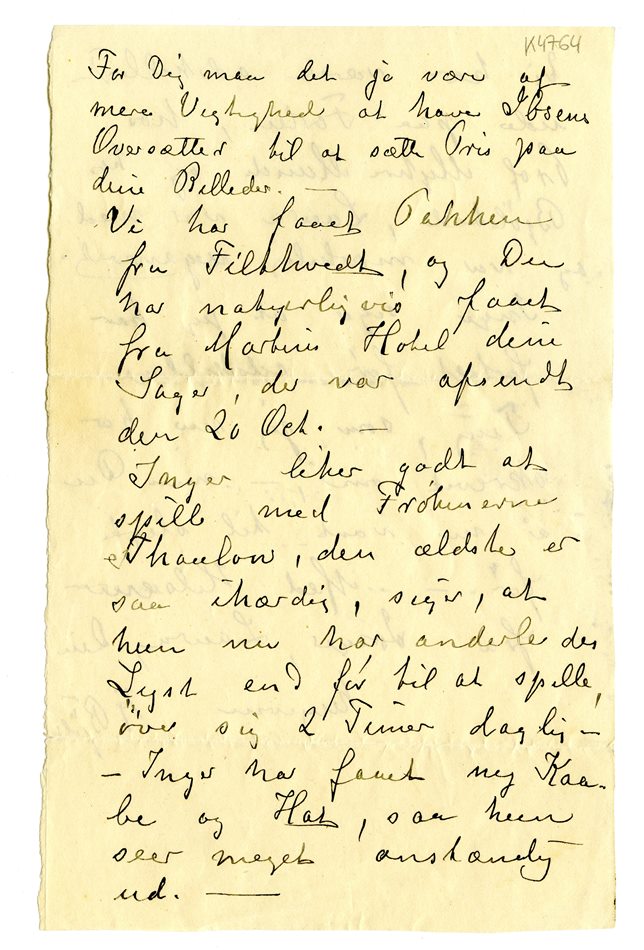 K4764
For Dig maa det jo være af
mere Vigtighed at have Ibsens
Oversætter til at sætte Pris paa
dine Billeder. —
Vi har faaet Pakken
fra Filtvedt, og Du
har naturligvis faaet
fra Martins Hotel dine
Sager, der var afsendt
den 20 Oct. —
Inger liker godt at
spille med Frøknerne
Thaulow, den ældste er
saa ihærdig, siger, at
hun nu har anderledes
Lyst end før til at spille,
øver sig 2 Timer daglig —
— Inger har faaet ny Kaa-
be og Hat, saa hun
seer meget anstændig
ud. —